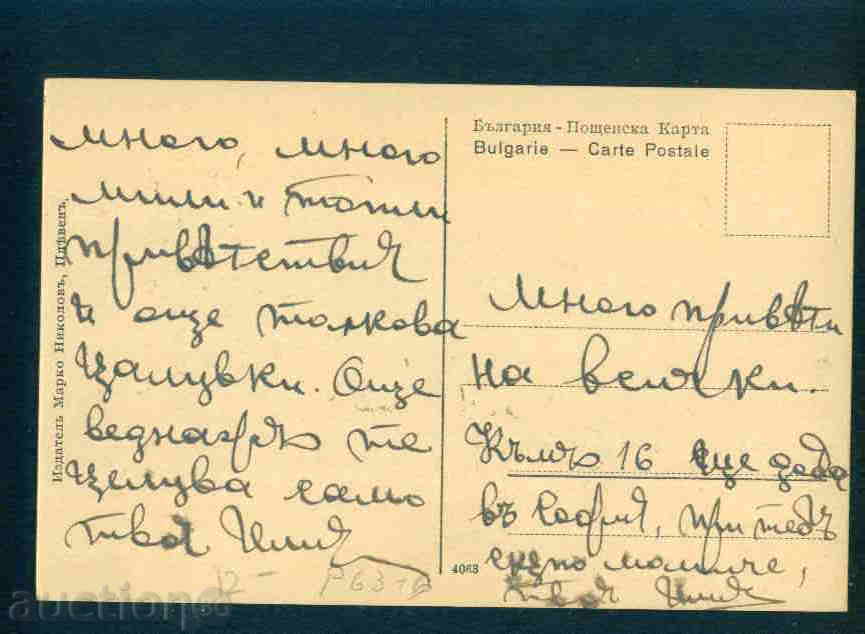 много, много
мили и топли
привѣтствия
и още толкова
цалувки. Още
веднажъ те
целува само
твоя
Издатель Марко Николовъ, Плѣвенъ.
България - Пощенска Карта
Bulgarie — Carte Postale
Много привѣти
на всички.
Към 16 ще дода
въ София, при тебъ
скъпо момиче,
твоя
4063